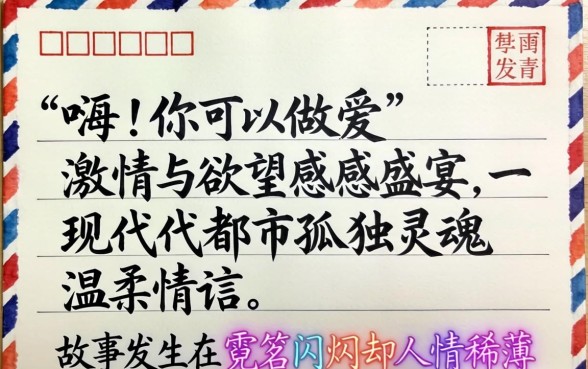 “嗨！你可以做爱”
激情与欲望感感盛宴，一
现代代都市孤独灵魂
温柔情
故事发生在霓闪却人情稀薄